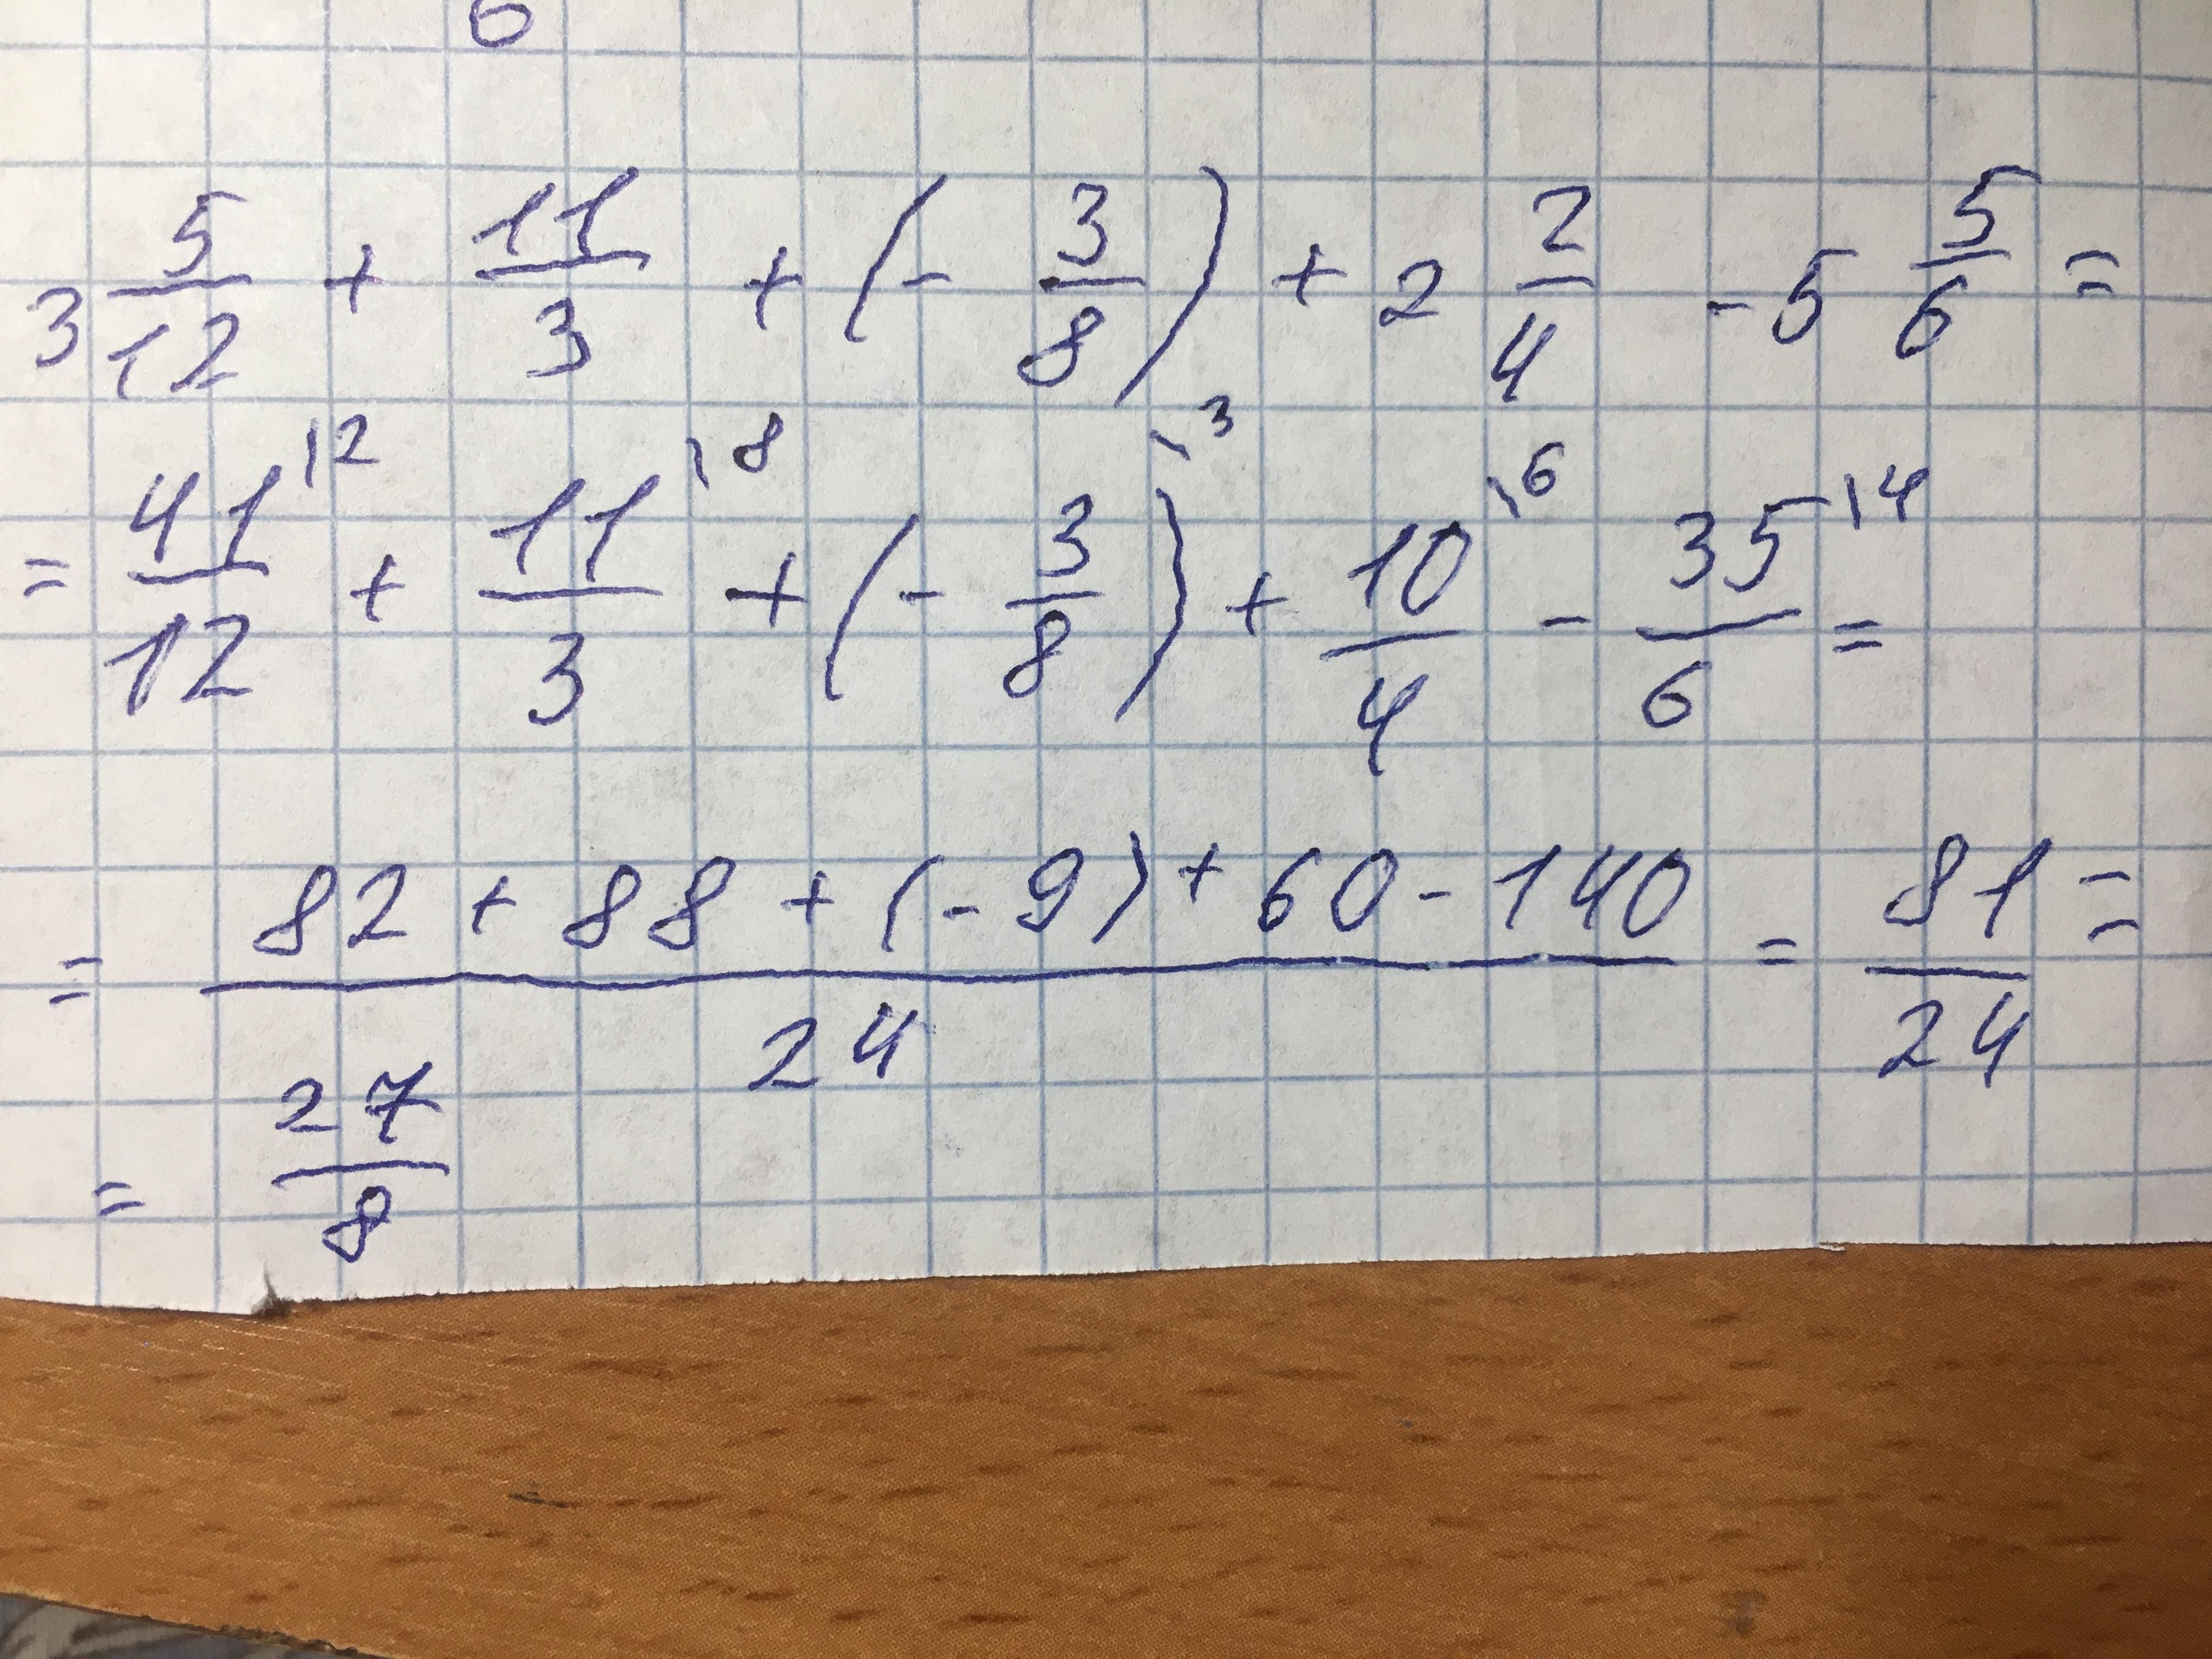 6
3 5/12 + 11/3 + (- 3/8) + 2 2/4 - 5 5/6 =
= 41/12 \2 + 11/3 \8 + (- 3/8) \3 + 10/4 \6 - 35/6 \4 =
= 82 + 88 + (-9) + 60 - 140 / 24 = 81/24 =
= 27/8